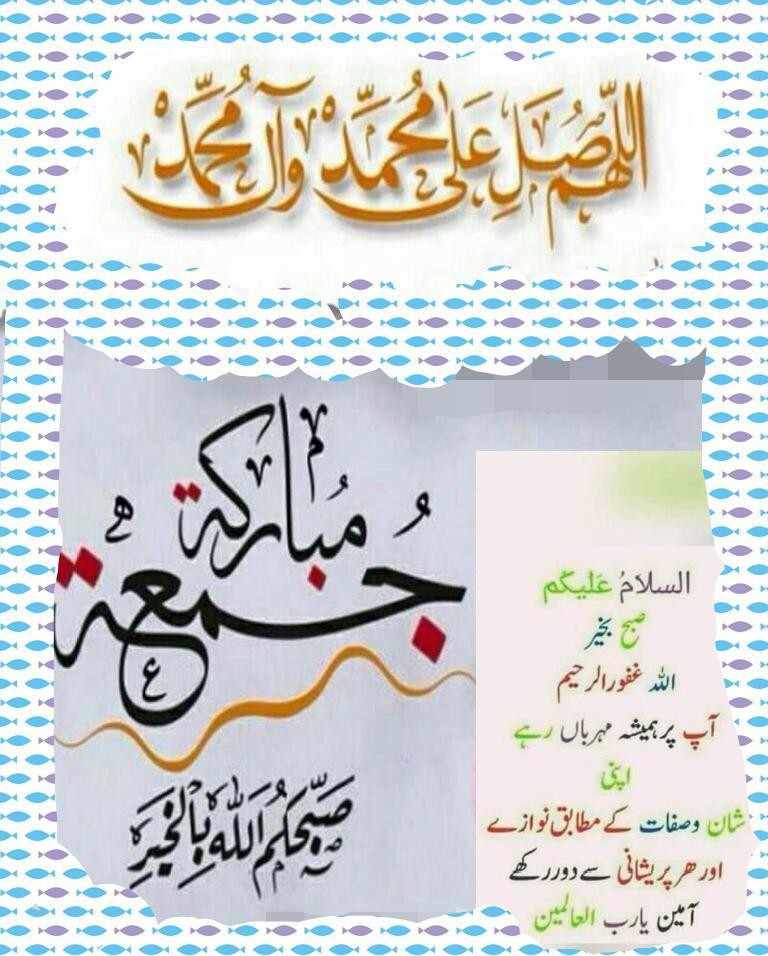 اللّٰهُمَّ صَلِّ عَلَىٰ مُحَمَّدٍ وَآلِ مُحَمَّدٍ
جُمعة مُباركة
صَبَّحَكُمُ اللّٰهُ بِالْخَيْرِ
السلامُ عَلیکُم
صبح بخیر
اللہ غفورالرحیم
آپ پر ہمیشہ مہرباں رہے
اپنی
شان وصفات کے مطابق نوازے
اور ھر پریشانی سے دور رکھے
آمین یارب العالمین